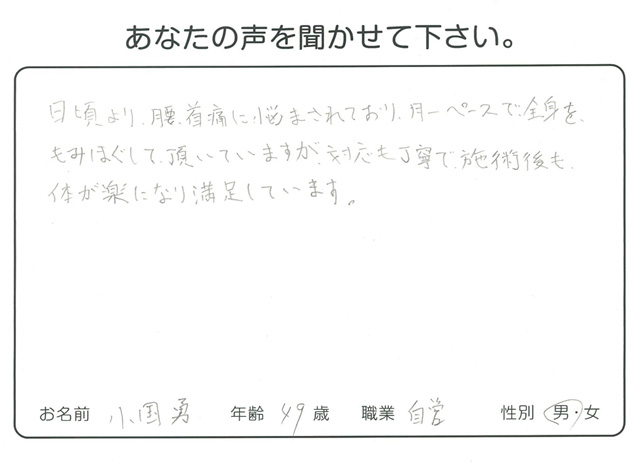 あなたの声を聞かせて下さい。
日頃より、腰、首痛に悩まされており、月一ペースで、全身を、
もみほぐして頂いていますが、対応も丁寧で、施術後も、
体が楽になり満足しています。
お名前 小国勇 年齢 49 歳 職業 自営 性別 男・女